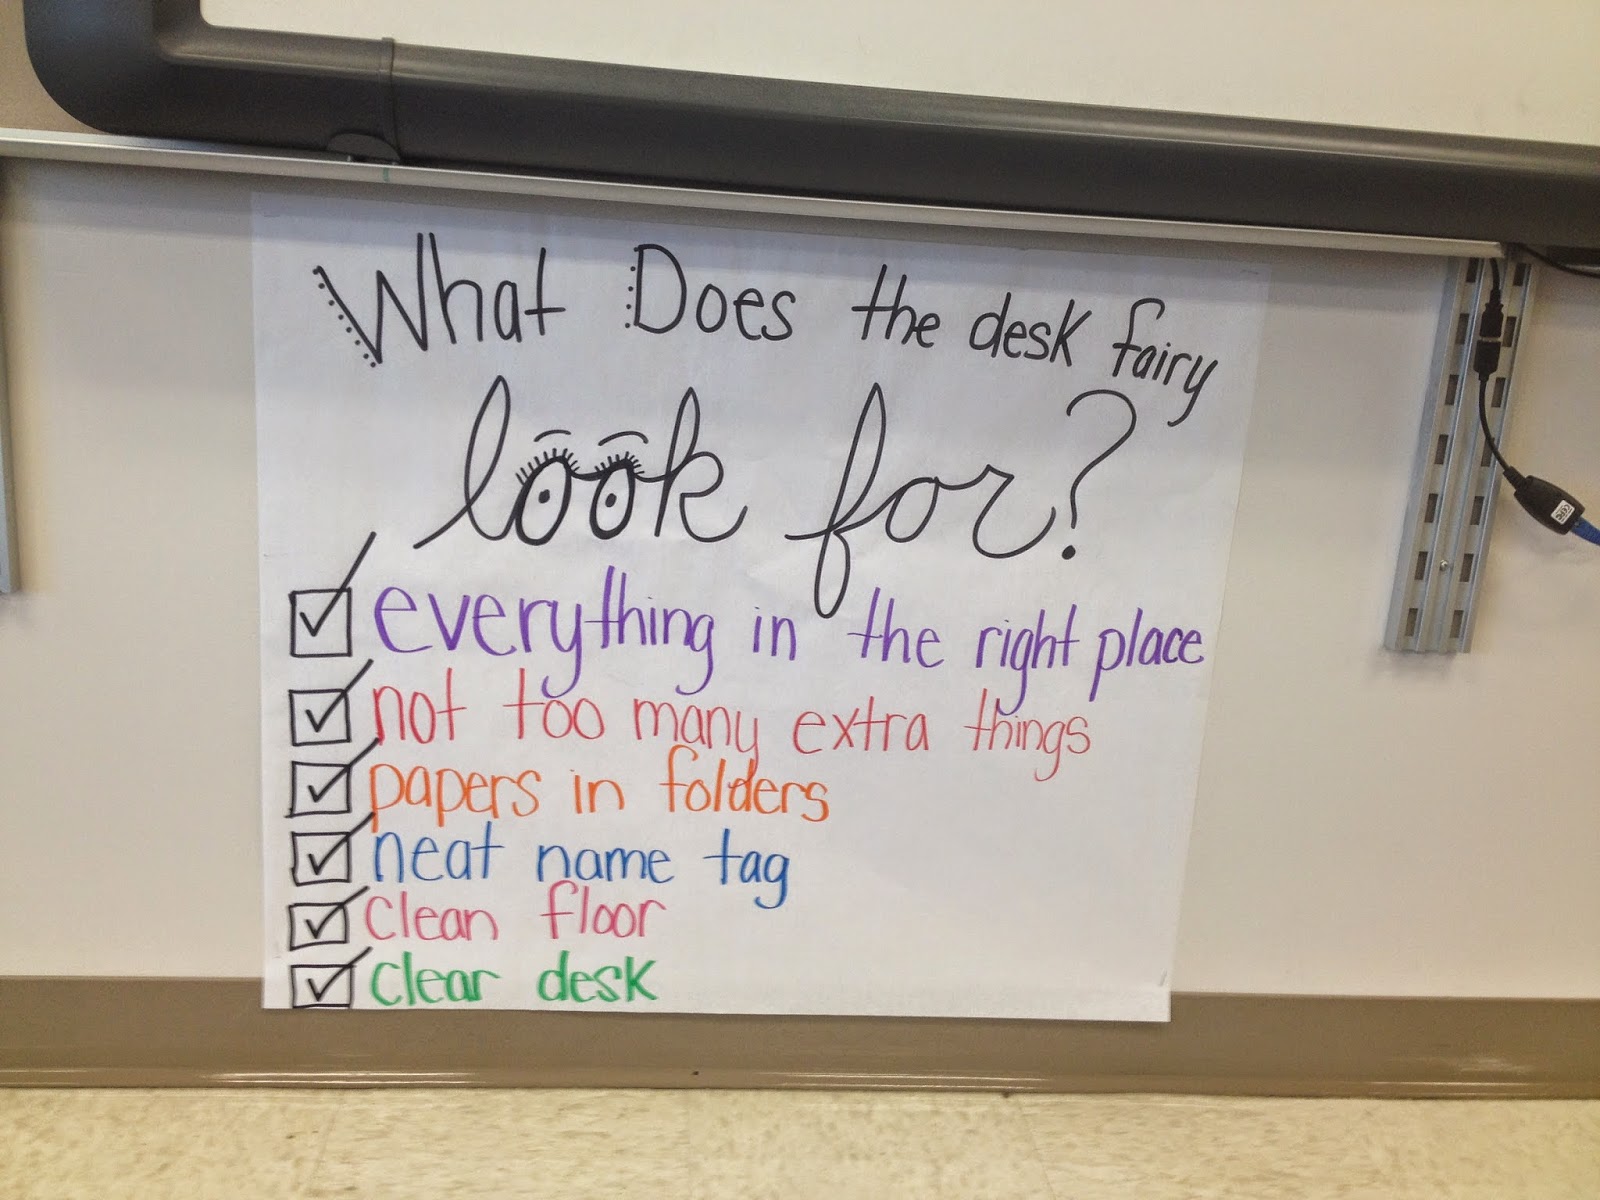 What Does the desk fairy
look for?
everything in the right place
not too many extra things
papers in folders
neat name tag
clean floor
clear desk